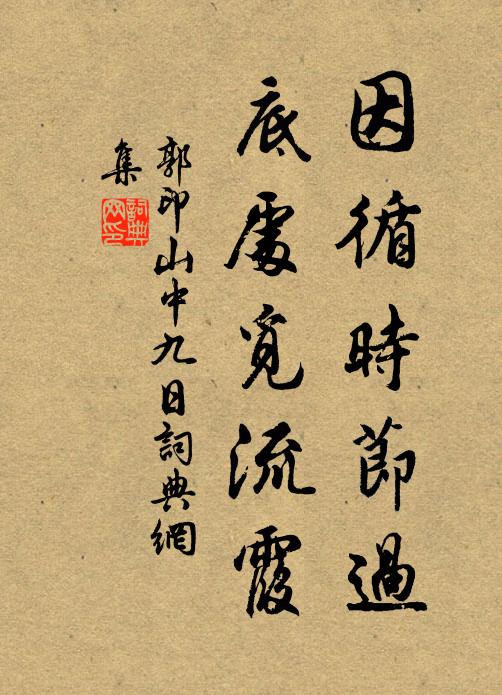 因循時節過
底處覓流霞
郭印山中九日詞典網
集
詞典網印